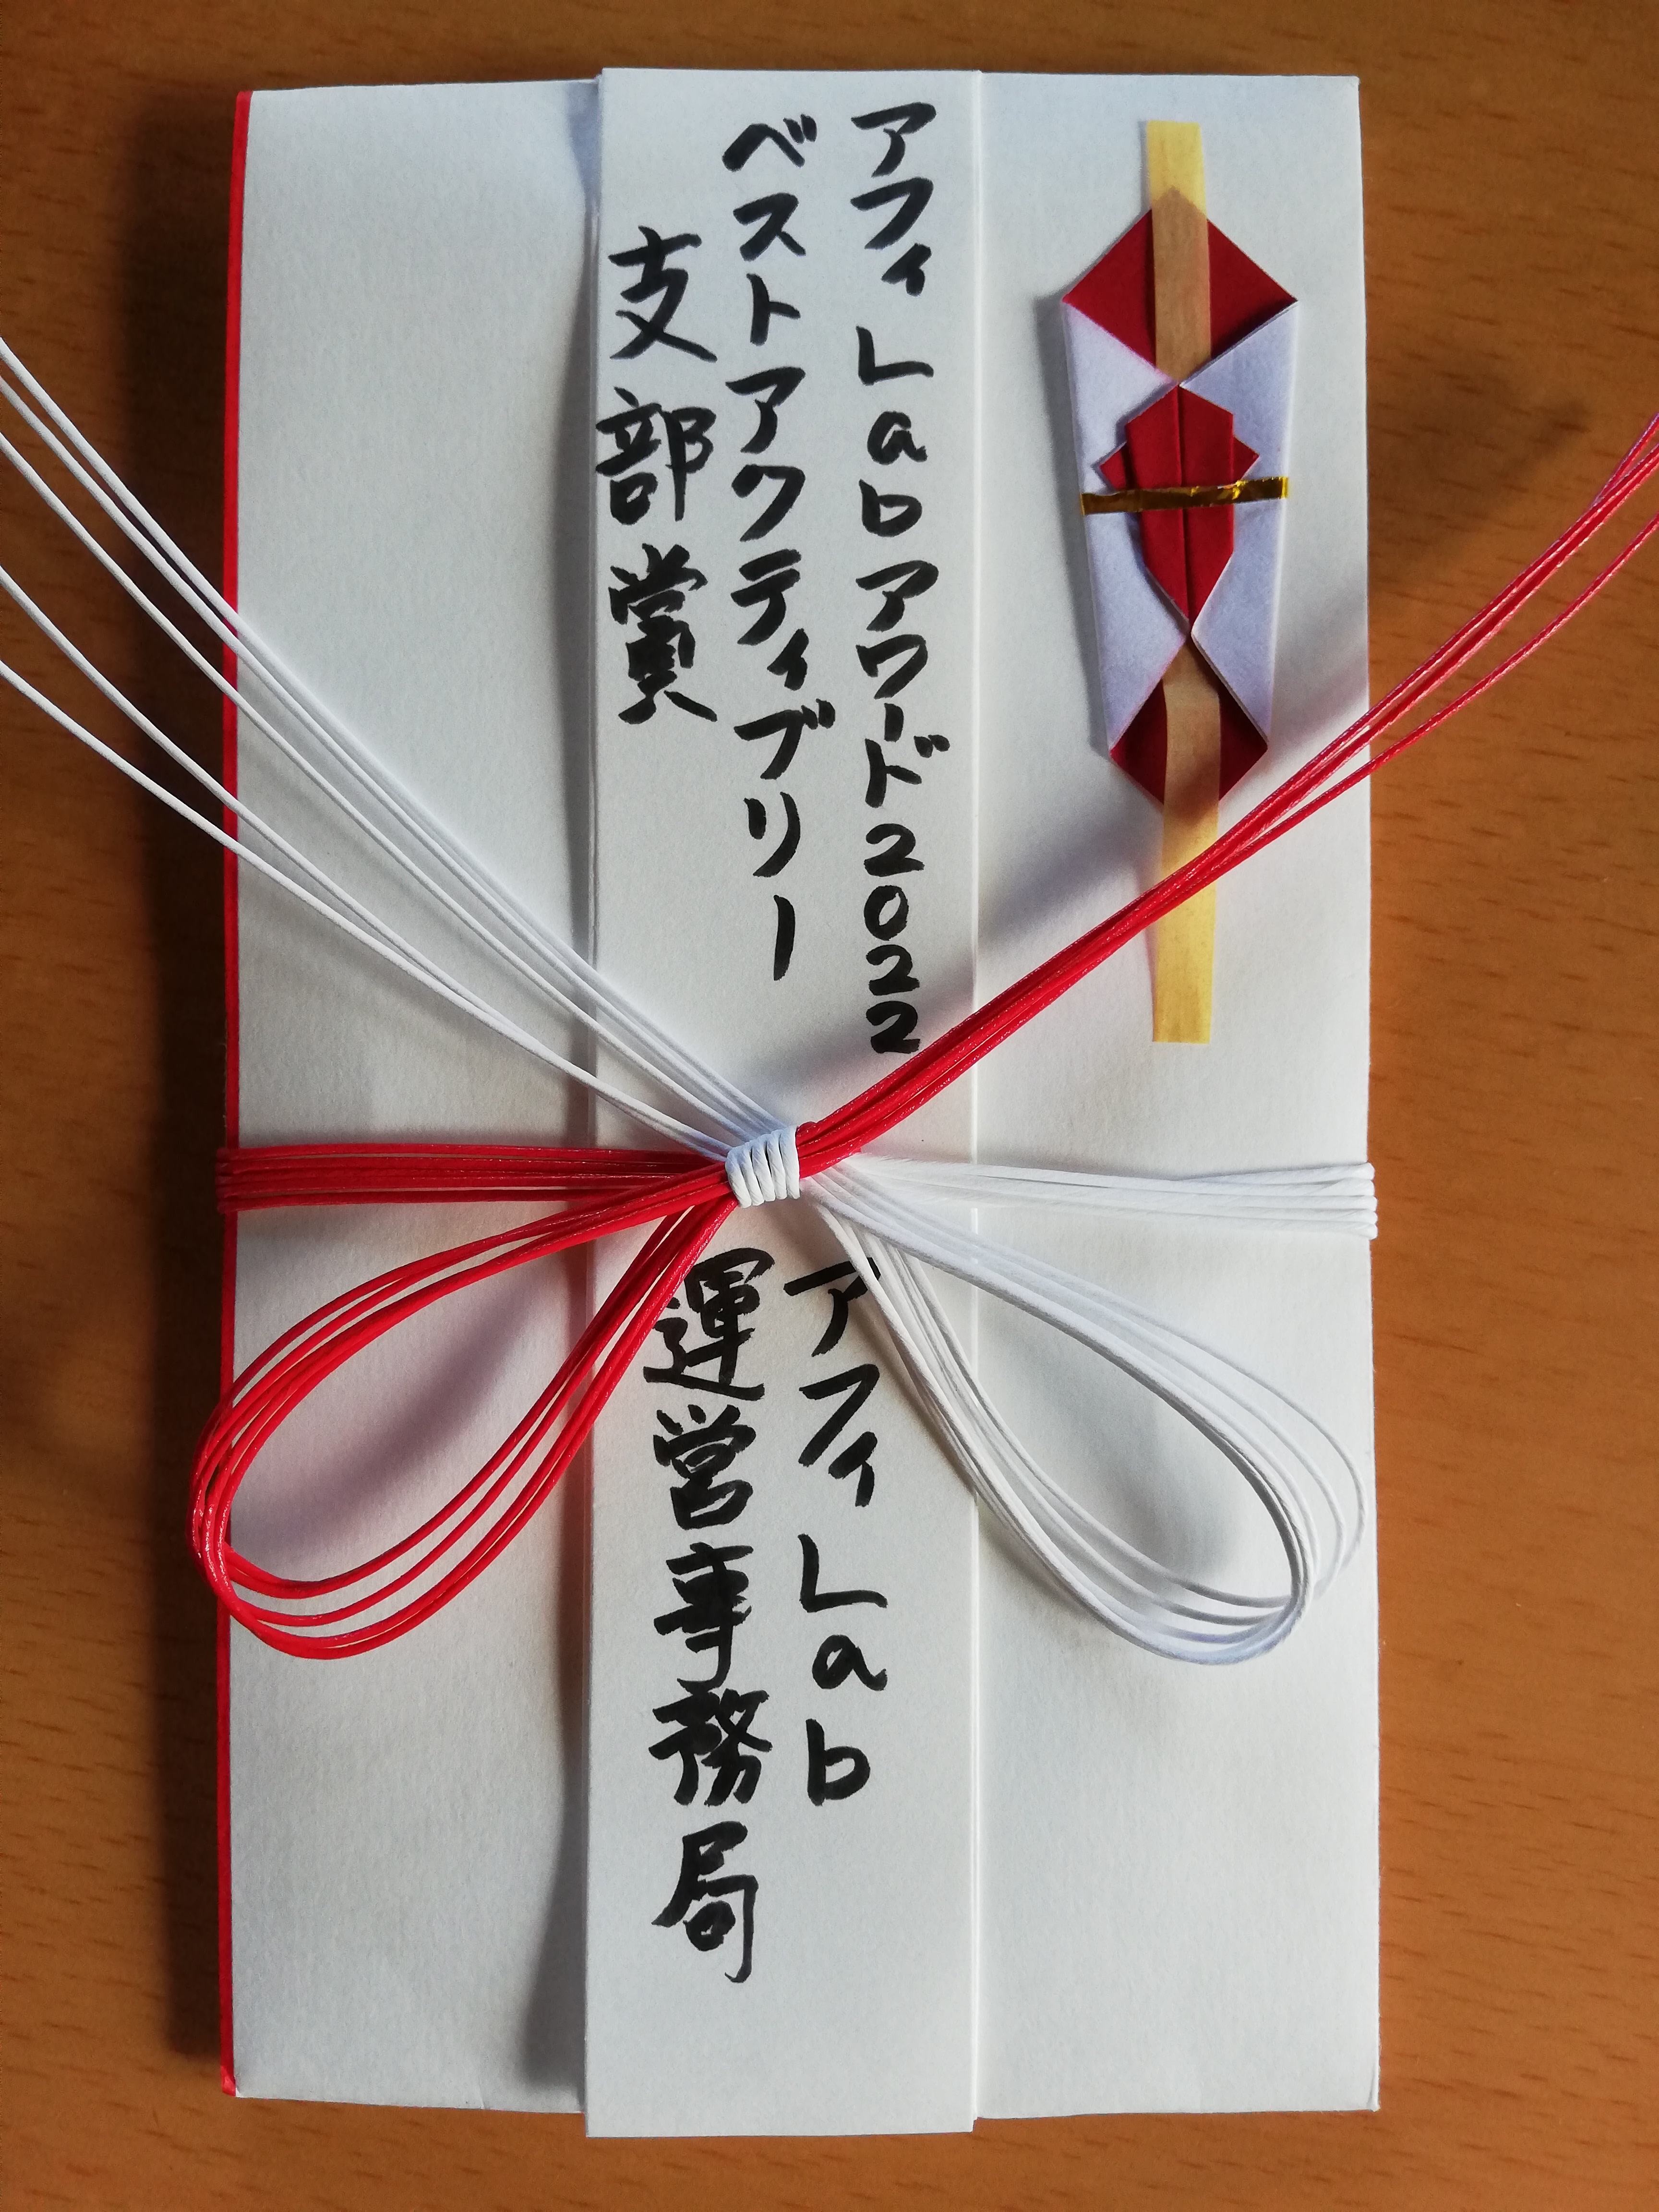 アフィLabアワード2022
ベストアクティブリー
支部賞
アフィLab
運営事務局